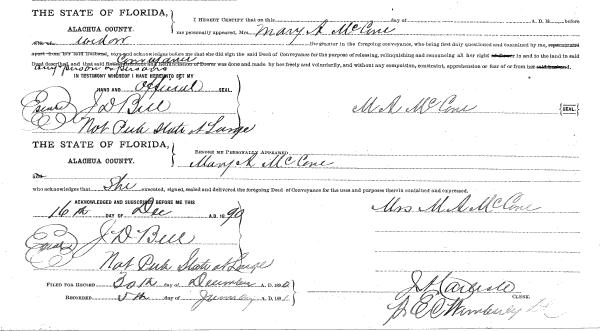 THE STATE OF FLORIDA,
ALACHUA COUNTY.
I HEREBY CERTIFY that on this day of A. D. 18 before
me personally appeared, Mrs. Mary A McCone
widow the grantor in the foregoing conveyance, who being first duly questioned and examined by me, separate and
apart from her said husband, did acknowledge before me that she did sign the said Deed of Conveyance for the purpose of releasing, relinquishing and renouncing all her right in and to the land in said
Deed described, and that said Conveyance was done and made by her freely and voluntarily, and without any compulsion, constraint, apprehension or fear of or from her said husband.
any person or persons
IN TESTIMONY WHEREOF I HAVE HEREUNTO SET MY
HAND AND Official SEAL
J D Bell
Not Pub State at Large
M A McCone SEAL
THE STATE OF FLORIDA,
ALACHUA COUNTY.
BEFORE ME PERSONALLY APPEARED
Mary A McCone
who acknowledges that She executed, signed, sealed and delivered the foregoing Deed of Conveyance for the uses and purposes therein contained and expressed.
ACKNOWLEDGED AND SUBSCRIBED BEFORE ME THIS
16th DAY OF Dec A. D. 1890
Mrs M A McCone
J D Bell
Not Pub State at Large
FILED FOR RECORD 30th day of December A. D. 1890
RECORDED 5th day of January A. D. 1891
CLERK.
E C Wimberly